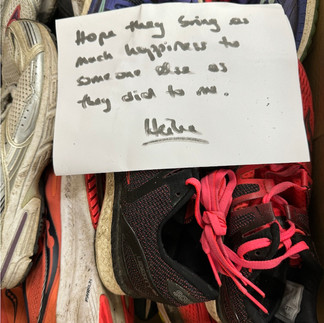 Hope they bring as
much happiness to
someone else as
they did to me.